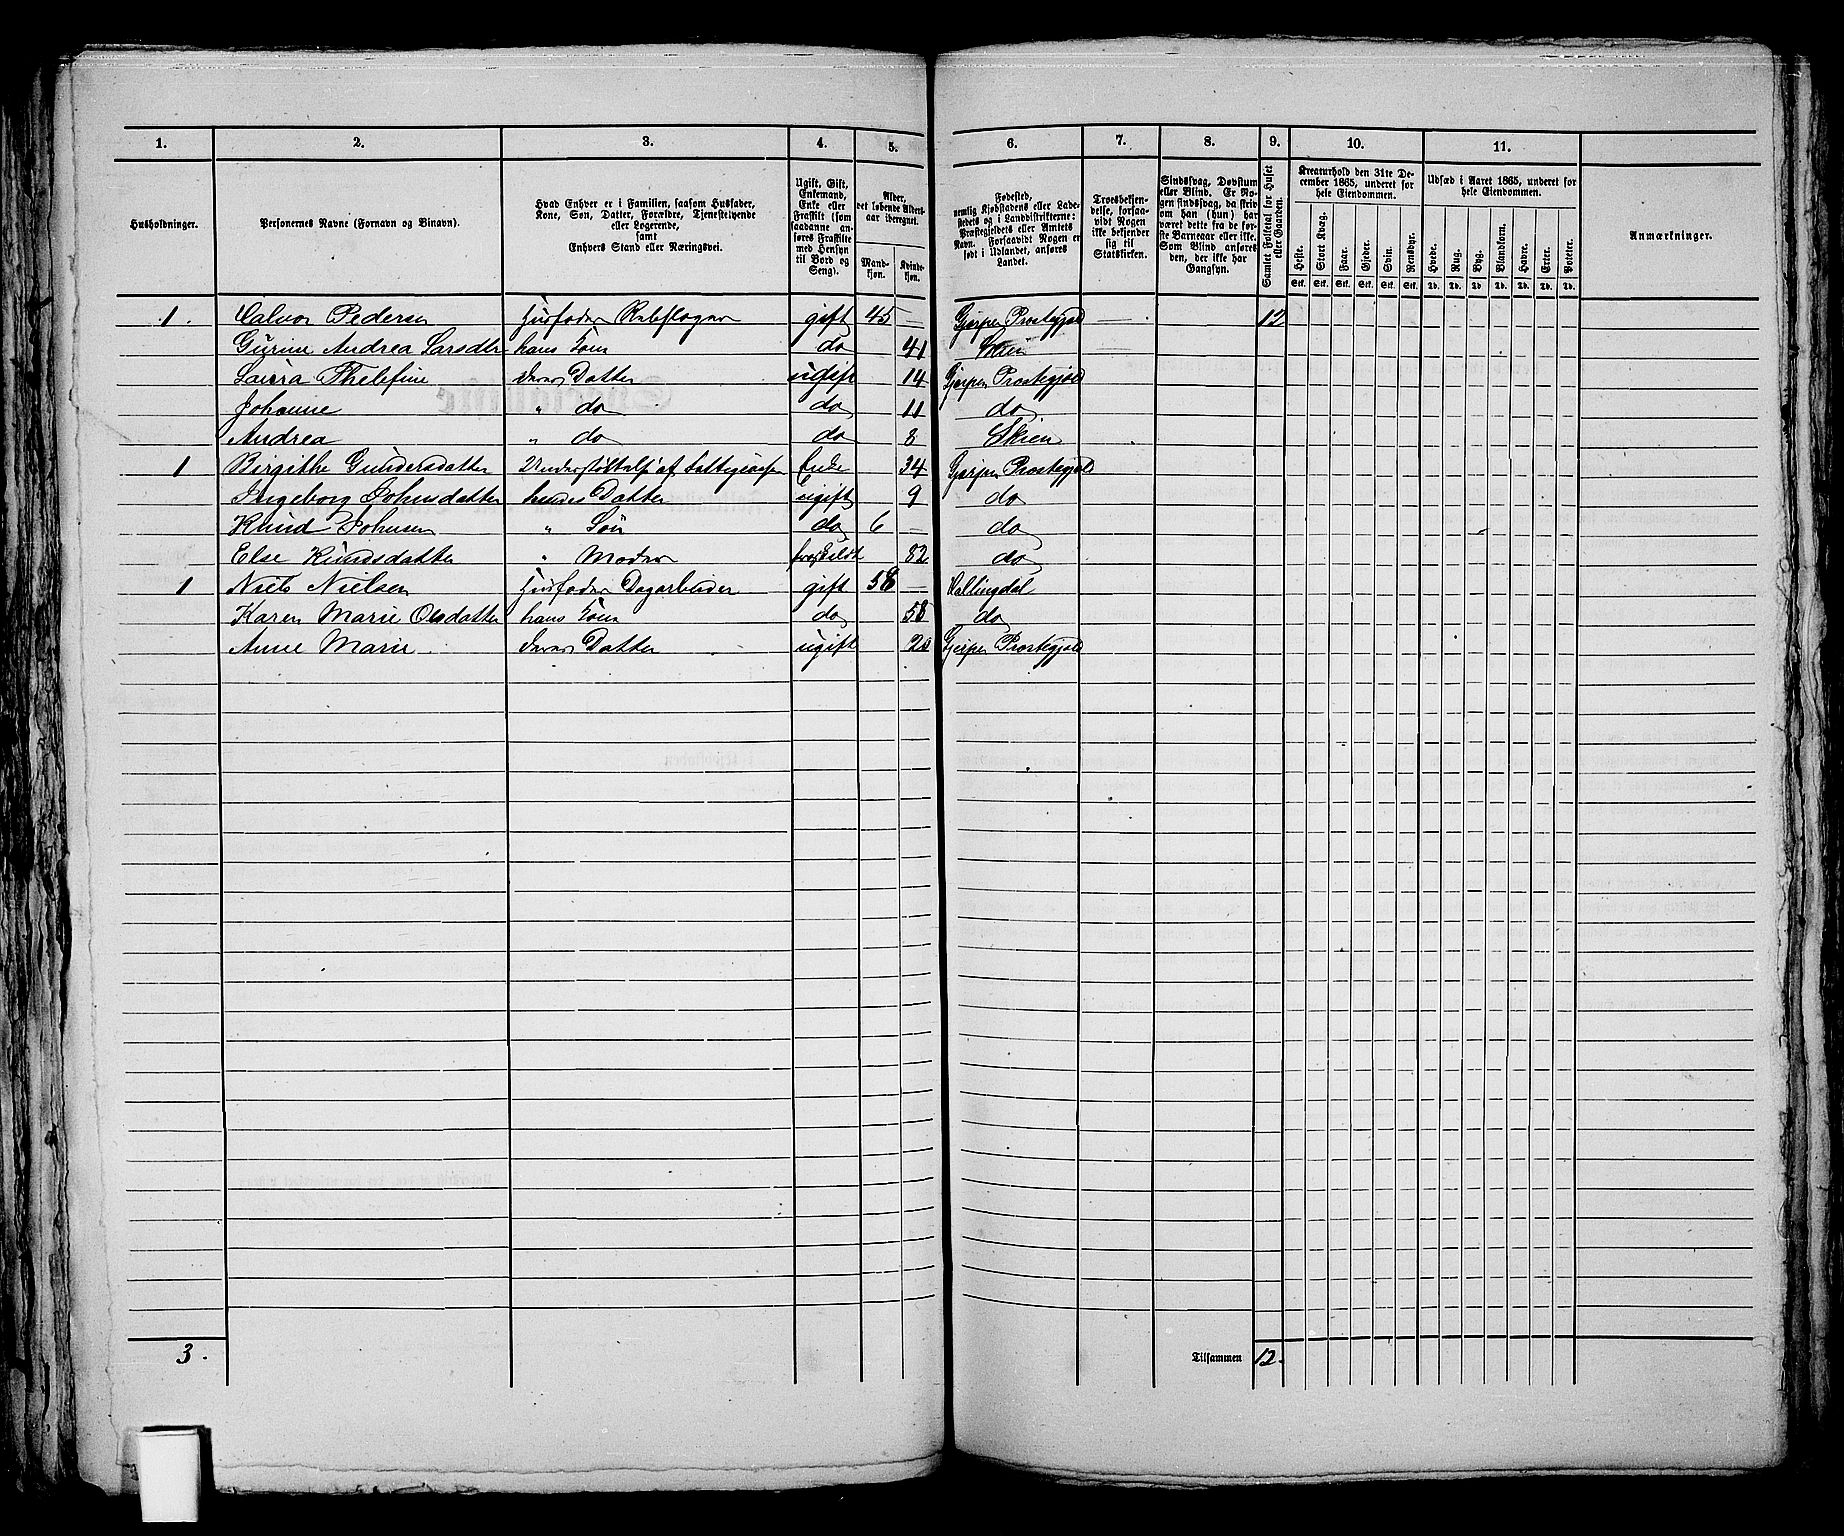 1. 2. 3. 4. 5. 6. 7. 8. 9. 10. 11.
Husholdninger.
Personernes Navne (Fornavn og Binavn).
Hvad Enhver er i Familien, saasom Husfader,
Kone, Søn, Datter, Forældre, Tjenestetyende
eller Logerende,
samt
Enhvers Stand eller Næringsvei.
Ugift, Gift,
Enkemand,
Enke eller
Fraskilt (som
saadanne an-
føres Fraskilte
med Hensyn
til Bord og
Seng).
Alder,
det løbende Alders-
aar iberegnet.
Mand-
kjøn.
Kvinde-
kjøn.
Fødested,
nemlig Kjøbstadens eller Lade-
stedets og i Landdistrikterne:
Præstegjeldets eller Amtets
Navn. Forsaavidt Nogen er
født i Udlandet, anføres
Landet.
Troesbekjen-
delse, forsaa-
vidt Nogen
ikke bekjender
sig til
Statskirken.
Sindssvag, Døvstum
eller Blind. Er No-
gen sindssvag, da skriv
om han (hun) har
været dette fra de før-
ste Barneaar eller ikke.
Som Blind anføres
den, der ikke har
Gangsyn.
Samlet Folketal for Huset
eller Gaarden.
Kreaturhold den 31te De-
cember 1865, underet for
hele Eiendommen.
Heste. Stort Kvæg. Faar. Gjeder. Svin. Rensdyr.
Stk. Stk. Stk. Stk. Stk. Stk.
Udsæd i Aaret 1865, underet for
hele Eiendommen.
Hvede. Rug. Byg. Blandkorn. Havre. Erter. Poteter.
Td. Td. Td. Td. Td. Td. Td.
Anmærkninger.
1. Calvor Pedersen Husfader Rebslager gift 45 — Gjerpen Prestegjeld 12
Gurine Andrea Larsdtr hans Kone do 41 Skien
Laura Thelefine deres Datter ugift 14 Gjerpen Prestegjeld
Johanne " do do 11 do
Andrea " do do 8 Skien
1 Birgithe Gundersdatter Understøttelse af Fattigvæsen Enke 34 Gjerpen Prestegjeld
Ingeborg Johnsdatter hendes Datter ugift 9 do
Knud Johnsen " Søn do 6 — do
Else Knudsdatter " Moder fraskildt 82 do
1 Niels Nielsen Husfader Dagarbeider gift 58 — Hallingdal
Karen Marie Olsdatter hans Kone do 58 do
Anne Marie deres Datter ugift Gjerpen Prestegjeld
3. Tilsammen 12.